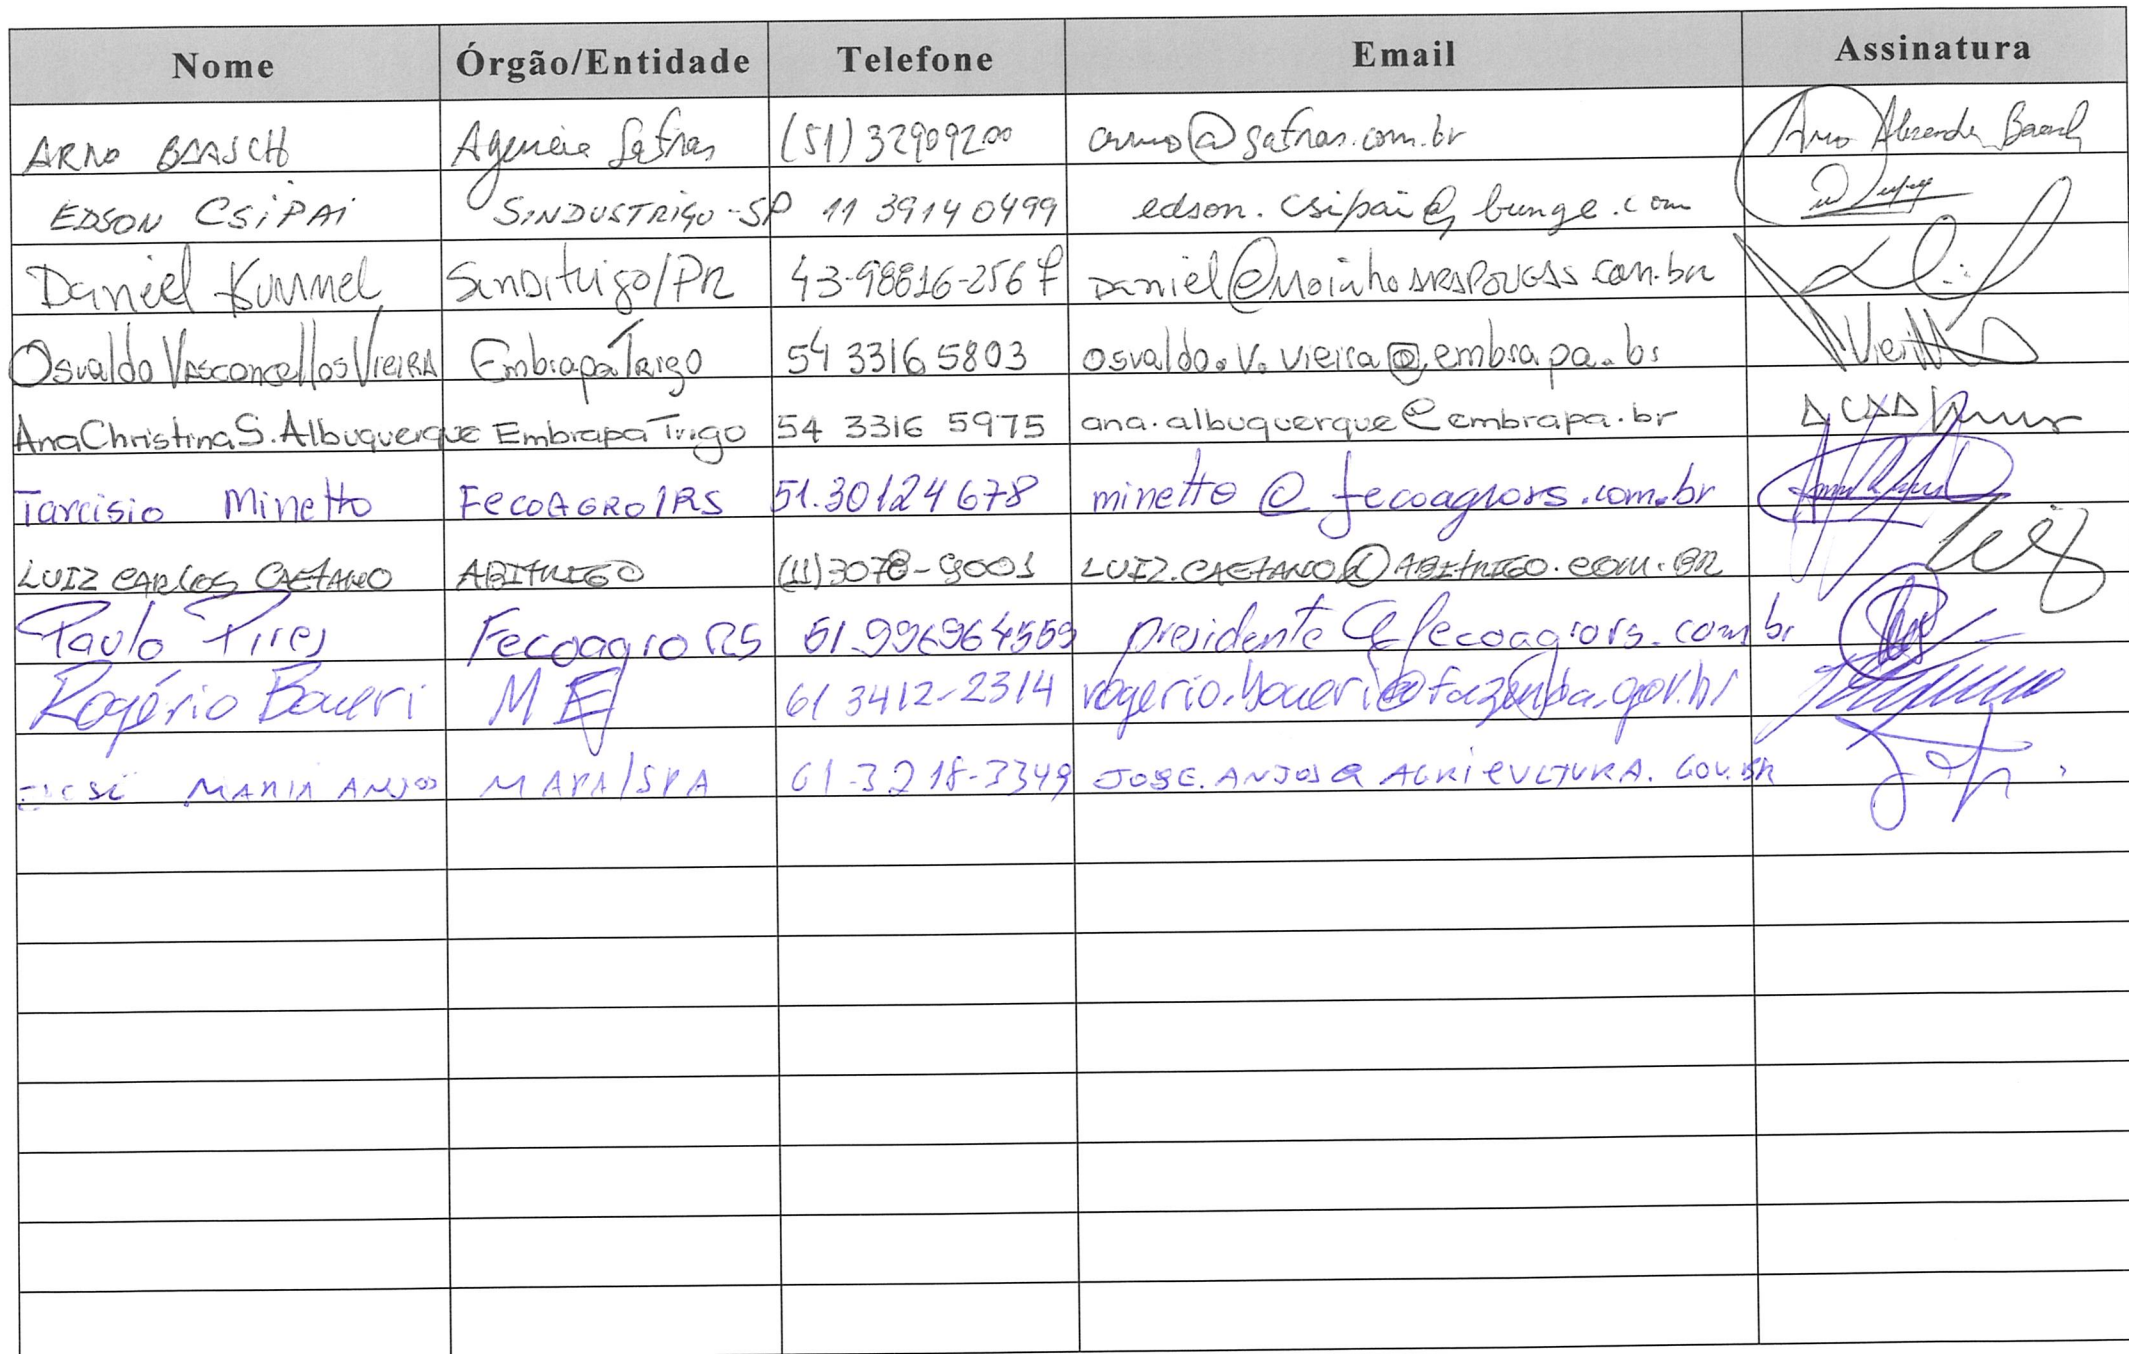 Nome Órgão/Entidade Telefone Email Assinatura
ARNO BAASCH Agencia Safras (51) 32909200 arno@safras.com.br Arno Alexandre Baasch
EDSON CSiPAi SiNDUSTRIGO-SP 11 39140499 edson.csipai@bunge.com
Daniel Kummel SinDitrigo/PR 43-98816-2567 Daniel@Moinho .com.br
Osvaldo Vasconcellos Vieira Embrapa Trigo 54 3316 5803 osvaldo.v.vieira@embrapa.br
Ana Christina S. Albuquerque Embrapa Trigo 54 3316 5975 ana.albuquerque@embrapa.br
Tarcisio Minetto FECOAGRO/RS 51.30124678 minetto@fecoagrors.com.br
LUIZ CARLOS CAETANO ABITRIGO (11)3078-9001 LUIZ.CAETANO@ABITRIGO.COM.BR
Paulo Pires Fecoagro RS 51.996964559 presidente@fecoagrors.com br
Rogério Boueri ME 61 3412-2314 rogerio.boueri@fazenda.gov.br
MARIA ANJOS MAPA/SPA 61-3218-3349 JOSE.ANJOS@AGRICULTURA.GOV.BR